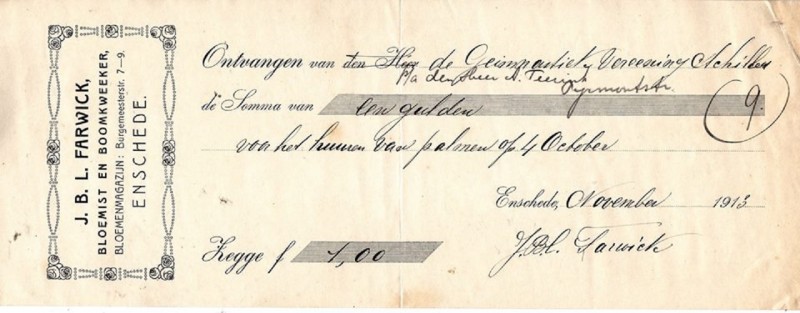 J. B. L. FARWICK,
BLOEMIST EN BOOMKWEEKER,
BLOEMENMAGAZIJN: Burgemeesterstr. 7—9.
ENSCHEDE.
Ontvangen van den Heer de Gymnastiek Vereening Achilles
P/a den Heer A.
de Somma van een gulden
9.
voor het huuren van palmen op 4 October
Enschede, November 1913
Zegge f 1,00
J.B.L. Farwick